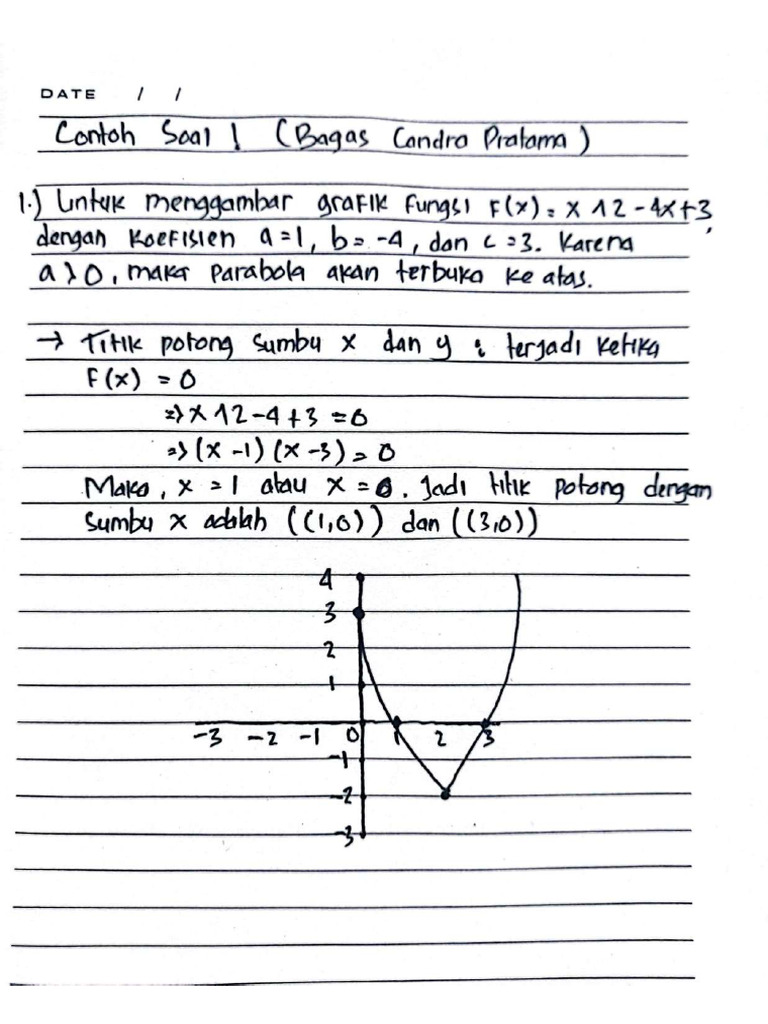 DATE / /
Contoh Soal 1 (Bagas Candra Pratama)
1.) Untuk menggambar grafik fungsi F(x) = x ^ 2 - 4x + 3,
dengan koefisien a = 1, b = -4, dan c = 3. Karena
a > 0, maka parabola akan terbuka ke atas.
→ Titik potong sumbu x dan y : terjadi ketika
F(x) = 0
=> x ^ 2 - 4 + 3 = 0
=> (x - 1) (x - 3) = 0
Maka, x = 1 atau x = 0. Jadi titik potong dengan
sumbu x adalah ((1,0)) dan ((3,0))
4
3
2
1
-3 -2 -1 0 1 2 3
-1
-2
-3